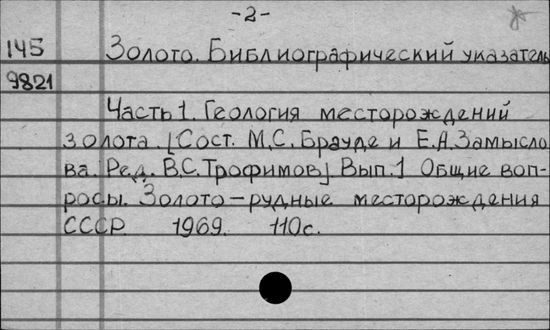 -2-
145 Золото. Библиографический указатель
9821
Часть 1. Геология месторождений
золота. [Сост. М.С. Брауде и Е.А. Замысло
ва. Ред. В.С. Трофимов] Вып. 1 Общие воп-
росы. Золото-рудные месторождения
СССР 1969. 110с.